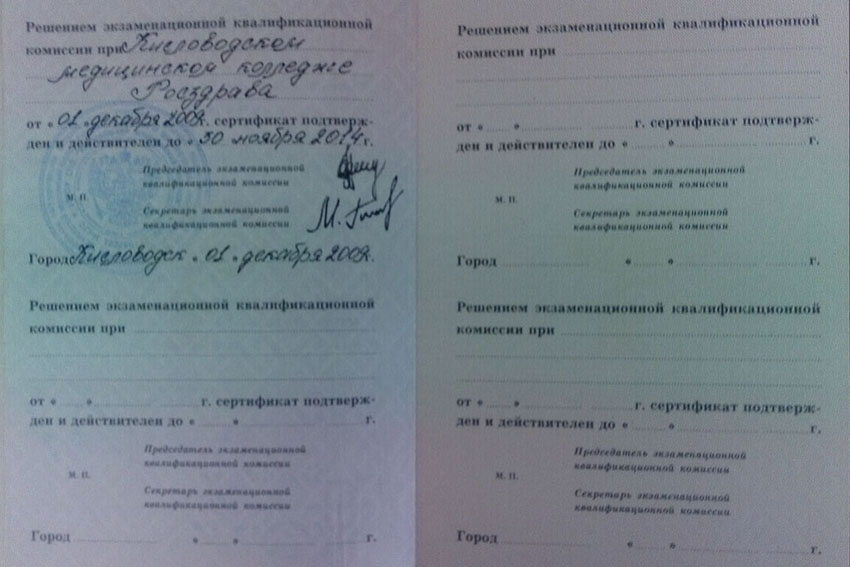 Решением экзаменационной квалификационной
комиссии при Кисловодском
медицинском колледже
Росздрава
от « 01 » декабря 2009г. сертификат подтверж-
ден и действителен до « 30 ноября 2014 г.
Председатель экзаменационной
квалификационной комиссии
М. П.
Секретарь экзаменационной
квалификационной комиссии
Город Кисловодск « 01 » декабря 2009г.
Решением экзаменационной квалификационной
комиссии при
от « » г. сертификат подтверж-
ден и действителен до « » г.
Председатель экзаменационной
квалификационной комиссии
М. П.
Секретарь экзаменационной
квалификационной комиссии
Город « » г.
Решением экзаменационной квалификационной
комиссии при
от « » г. сертификат подтверж-
ден и действителен до « » г.
Председатель экзаменационной
квалификационной комиссии
М. П.
Секретарь экзаменационной
квалификационной комиссии
Город « » г.
Решением экзаменационной квалификационной
комиссии при
от « » г. сертификат подтверж-
ден и действителен до « » г.
Председатель экзаменационной
квалификационной комиссии
М. П.
Секретарь экзаменационной
квалификационной комиссии
Город « » г.